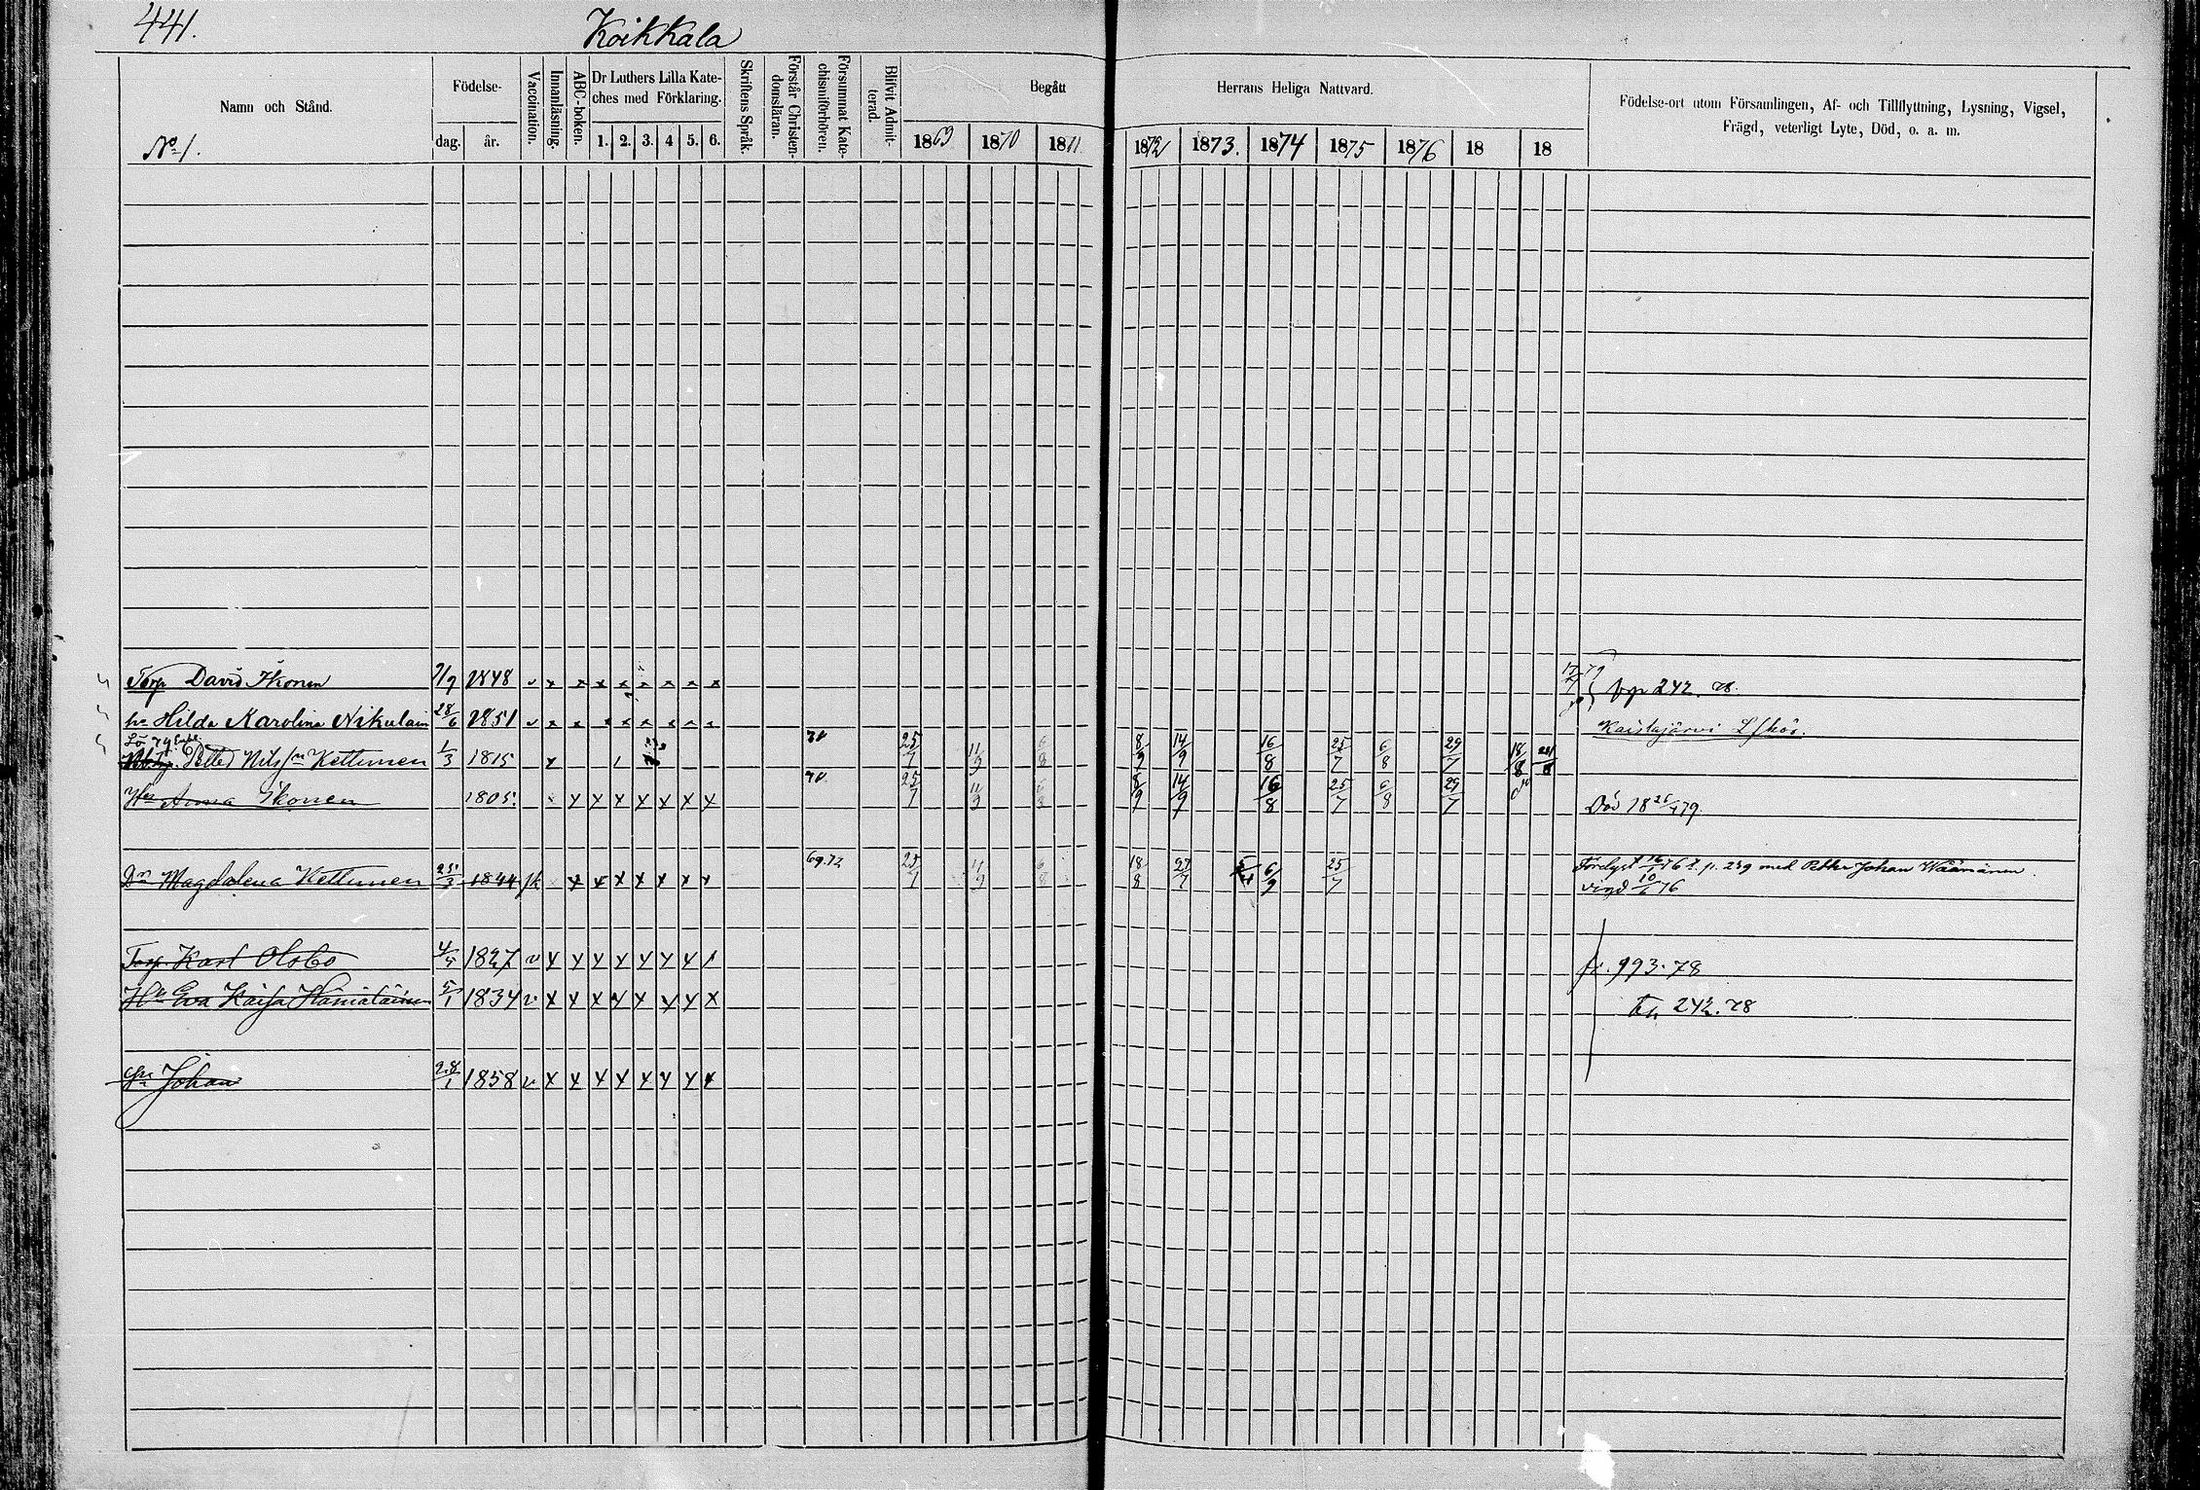 441.
Koikkala
Namn och Stånd.
No 1.
Födelse-
dag.
år.
Vaccination.
Innanläsning.
ABC-boken.
Dr Luthers Lilla Kate-
ches med Förklaring.
1. 2. 3. 4 5. 6.
Skriftens Språk.
Förstår Christen-
domsläran.
Försummat Kate-
chismiförhören.
Blifvit Admit-
terad.
Begått
Herrans Heliga Nattvard.
1869 1870 1871 1872 1873. 1874 1875 1876 18 18
Födelse-ort utom Församlingen, Af- och Tillflyttning, Lysning, Vigsel,
Frägd, veterligt Lyte, Död, o. a. m.
Torp David Ikonen 1848 x x x x x x x x
242. 78.
hu Hilda Karolina Nikulain 28/6 1851 x x x x x x x x
Kaislajärvi
Petter Nilss:n Kettunen 1/3 1815 x 70 25/7 11/9 6/8 8/9 14/9 16/8 25/7 6/8 29/7 18/8
Hu Anna Ikonen 1805. x x x x x x x 70 25/7 11/9 6/8 8/9 14/9 16/8 25/7 6/8 29/7
Död 18
Dr Magdalena Kettunen 1844 x x x x x x x 69.72 25/7 11/9 6/8 18/8 27/7 6/9 25/7
p. 239 med Petter Johan Wäänänen.
vigd 76
Torp. Karl Olsbo 4/5 1827 v x x x x x x x
993.78
Hu Eva Kaisa Hämäläinen 5/1 1834 v x x x x x x x x
242.78
Johan 28/1 1858 v x x x x x x x x